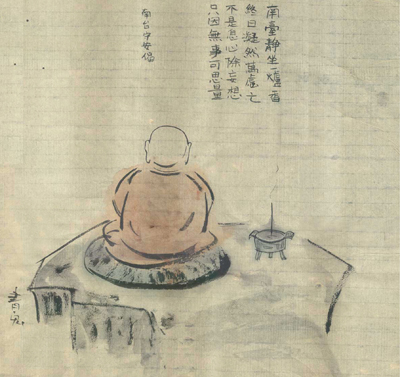 南臺靜坐一爐香
終日凝然萬慮亡
不是息心除妄想
只因無事可思量
南台守安偈